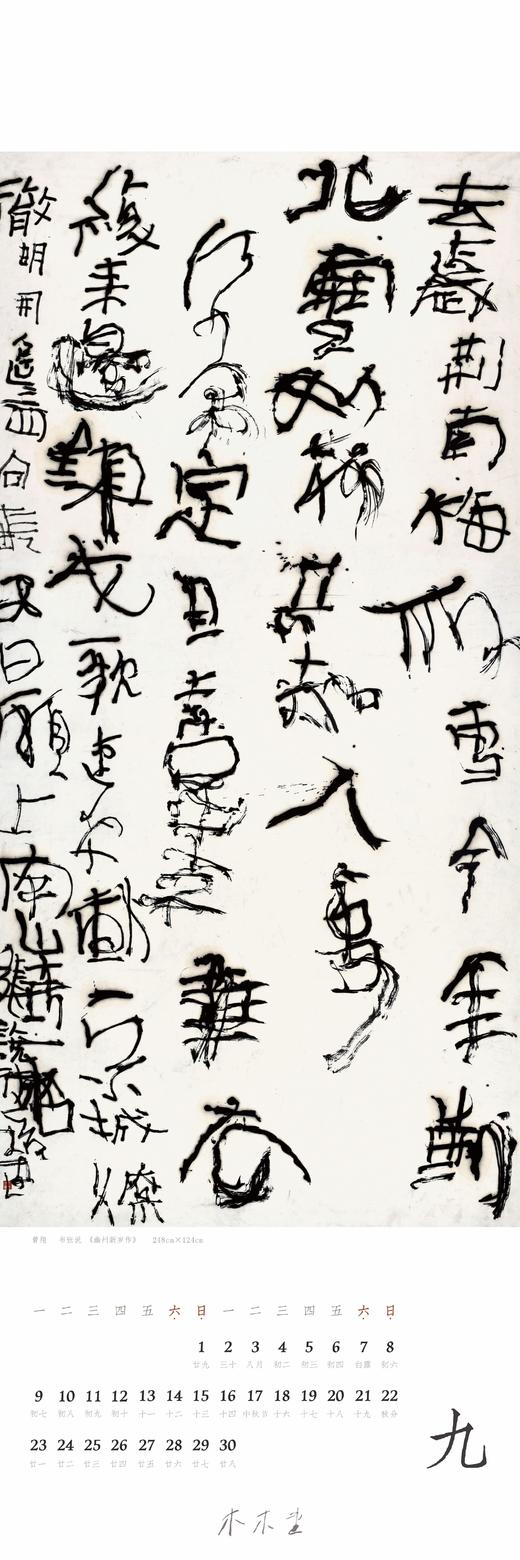 去歲荆南梅似雪今年薊
北雪如梅共知人事
何常定且喜年華去
復來邊鎮戍歌連夜動京城燎
徹明開遙西向長安日願上南山壽一杯
張說詩
曾翔 书张说 《幽州新岁作》 248cm×124cm
一 二 三 四 五 六 日 一 二 三 四 五 六 日
1 2 3 4 5 6 7 8
廿九 三十 八月 初二 初三 初四 白露 初六
9 10 11 12 13 14 15 16 17 18 19 20 21 22
初七 初八 初九 初十 十一 十二 十三 十四 中秋节 十六 十七 十八 十九 秋分
23 24 25 26 27 28 29 30
廿一 廿二 廿三 廿四 廿五 廿六 廿七 廿八
九
木木堂